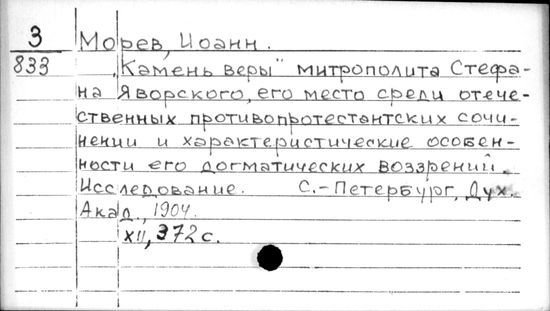 З
833
Морев, Иоанн.
„Камень веры" митрополита Стефа-
на Яворского, его место среди отече-
ственных противопротестантских сочи-
нений и характеристические особен-
ности его догматических воззрений.
Исследование. С.-Петербург, Дух.
Акад., 1904.
XII, 372 с.